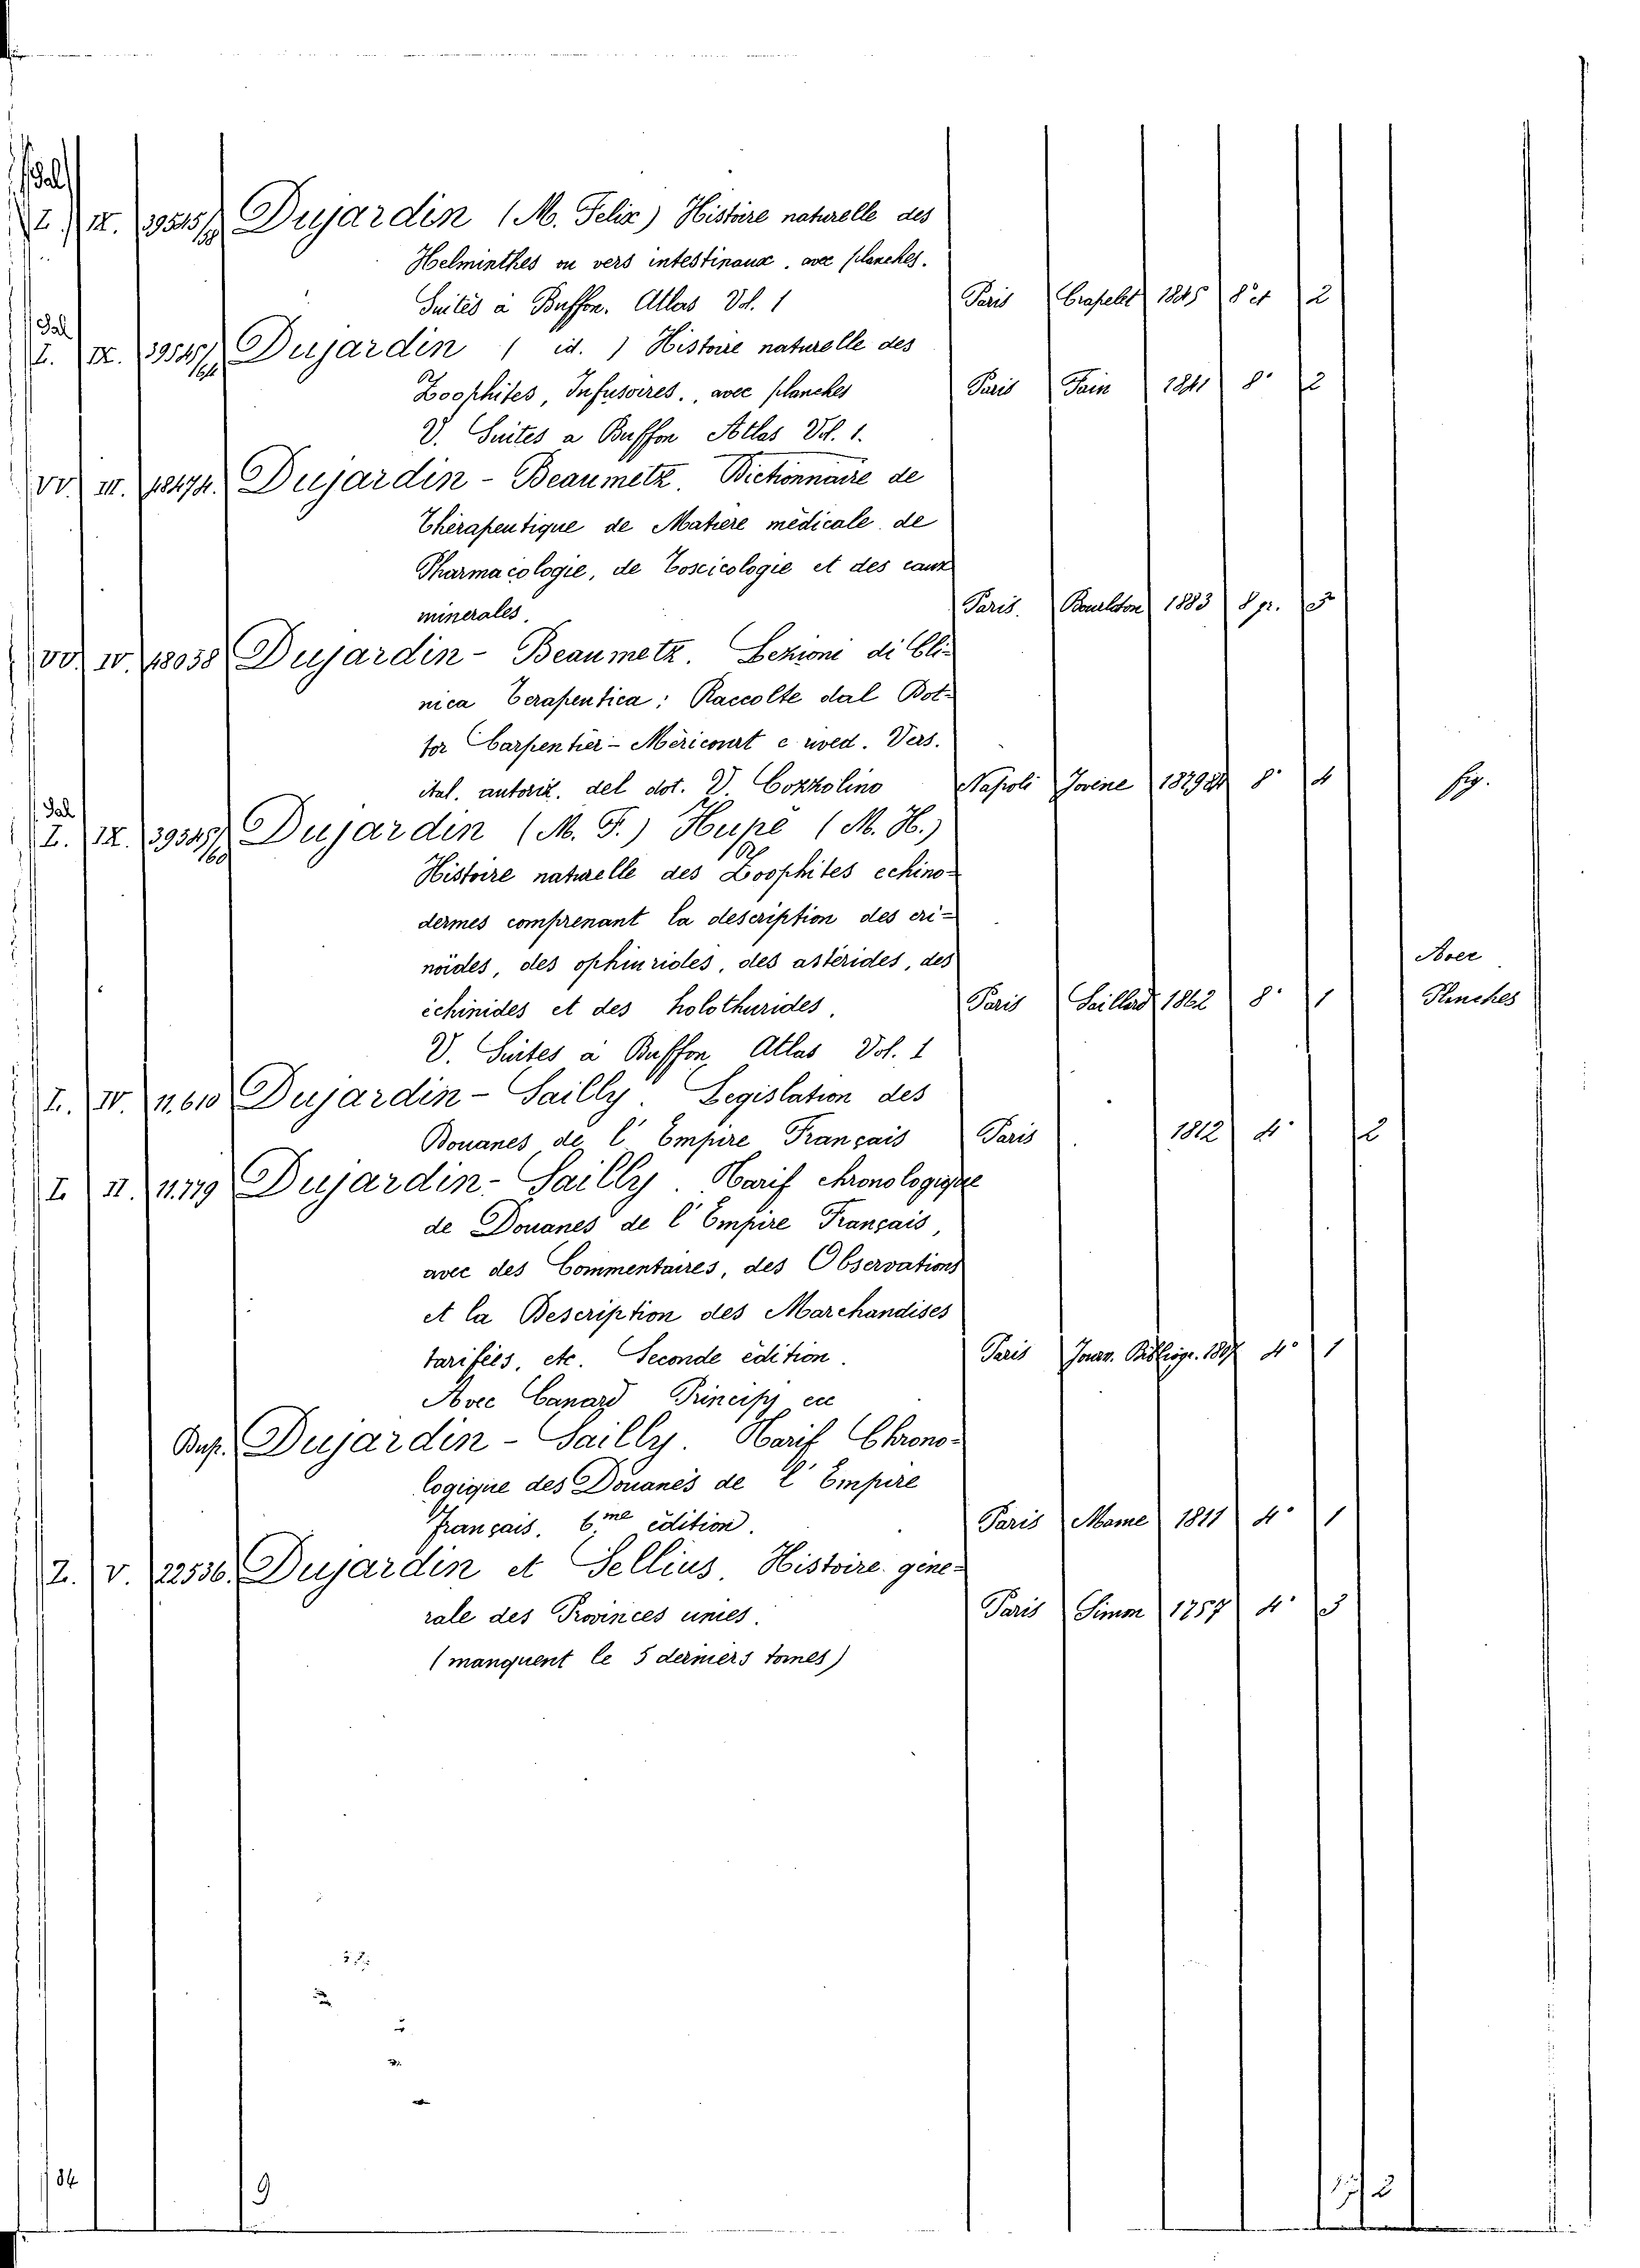 Sal
I. IX. 39545/ Dujardin (M. Felix) Histoire naturelle des
Helminthes ou vers intestinaux, avec planches.
Suites à Buffon. Atlas Vol. 1 Paris Crapelet 1845 8° 2
Sal
I. IX. 39545/ Dujardin ( id. ) Histoire naturelle des
Zoophites, Infusoires., avec planches Paris Fain 1841 8° 2
V. Suites a Buffon Atlas Vol. 1.
VV. III. 18474. Dujardin - Beaumetz. Dictionnaire de
Thérapeutique de Matiere médicale de
Pharmacologie, de Toscicologie et des eaux
minerales. Paris. 1883 8 gr. 5
VV. IV. 18038 Dujardin - Beaumetz. Lezioni di Cli-
nica Terapeutica; Raccolte dal Dot-
tor Carpentier - Méricourt e rived. Vers.
ital. autoriz. del dot. V. Cozzolino Napoli Jovine 1879 8° 4 fig.
Sal
I. IX. 39545/60 Dujardin (M. F.) Hupé (M. H.)
Histoire naturelle des Zoophites echino-
dermes comprenant la description des cri-
noïdes, des ophiurides, des astérides, des
échinides et des holothurides. Paris 1862 8° 1 Avec Planches
V. Suites a Buffon, Atlas Vol. 1
I. IV. 11.610 Dujardin - Sailly. Legislation des
Douanes de l' Empire Français Paris 1812 4° 2
I. II. 11.779 Dujardin - Sailly. Tarif chronologique
de Douanes de l' Empire Français,
avec des Commentaires, des Observations
et la Description des Marchandises
tarifées, etc. Seconde édition. Paris Journ. Bibliogr. 1807 4° 1
Avec Canard Princip ec
Dup. Dujardin - Sailly. Tarif Chrono-
logique des Douanes de l' Empire
français. 6.me édition. Paris Mame 1811 4° 1
I. V. 22536. Dujardin et Sellius. Histoire gene-
rale des Provinces unies. Paris Simon 1757 4° 3
(manquent le 5 derniers tomes)
84 9